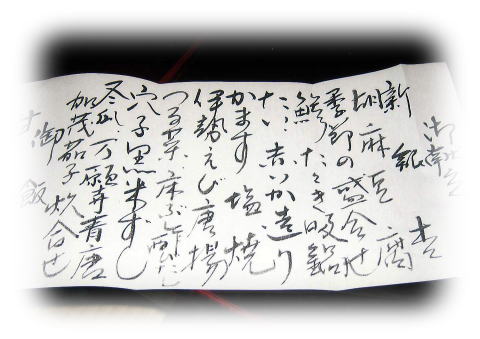 御献立
新銀杏
胡麻豆腐
季節の盛合せ
たゝき吸鍋
たい 赤いか造り
かます 塩焼
伊勢えび唐揚
つる菜
穴子黒米ずし
冬瓜 万願寺青唐
加茂茄子 炊合せ
御飯